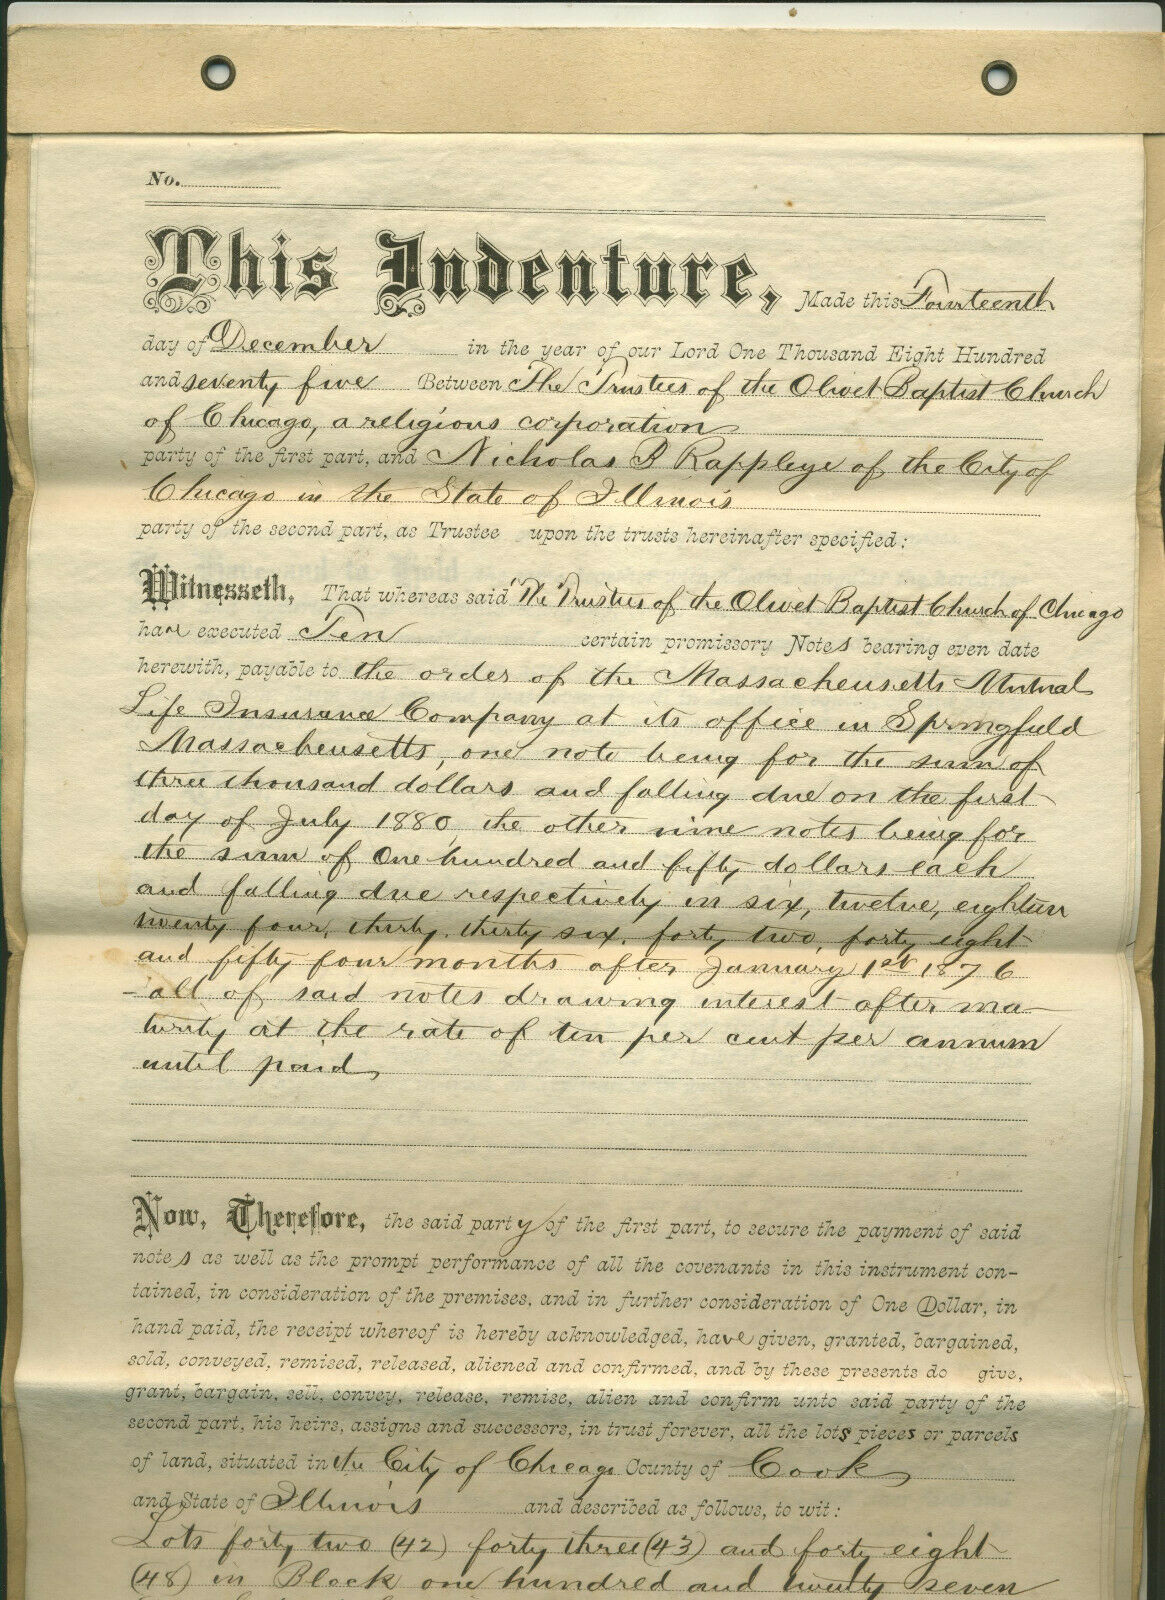 No.
This Indenture, Made this Fourteenth
day of December in the year of our Lord One Thousand Eight Hundred
and seventy five Between The Trustees of the Olivet Baptist Church
of Chicago, a religious corporation
party of the first part, and Nicholas B Rappleye of the City of
Chicago in the State of Illinois
party of the second part, as Trustee upon the trusts hereinafter specified:
Witnesseth, That whereas said "The Trustees of the Olivet Baptist Church of Chicago
have executed Ten certain promissory Notes bearing even date
herewith, payable to the order of the Massacheusetts Mutual
Life Insurance Company at its office in Springfield
Massacheusetts, one note being for the sum of
three thousand dollars and falling due on the first
day of July 1880, the other nine notes being for
the sum of One hundred and fifty dollars each
and falling due respectively in six, twelve, eighteen
twenty four, thirty, thirty six, forty two, forty eight
and fifty four months after January 1st 1876
- all of said notes drawing interest after ma-
turity at the rate of ten per cent per annum
until paid
Now, Therefore, the said party of the first part, to secure the payment of said
notes as well as the prompt performance of all the covenants in this instrument con-
tained, in consideration of the premises, and in further consideration of One Dollar, in
hand paid, the receipt whereof is hereby acknowledged, have given, granted, bargained,
sold, conveyed, remised, released, aliened and confirmed, and by these presents do give,
grant, bargain, sell, convey, release, remise, alien and confirm unto said party of the
second part, his heirs, assigns and successors, in trust forever, all the lots pieces or parcels
of land, situated in the City of Chicago County of Cook
and State of Illinois and described as follows, to wit:
Lots forty two (42) forty three (43) and forty eight
(48) in Block one hundred and twenty seven